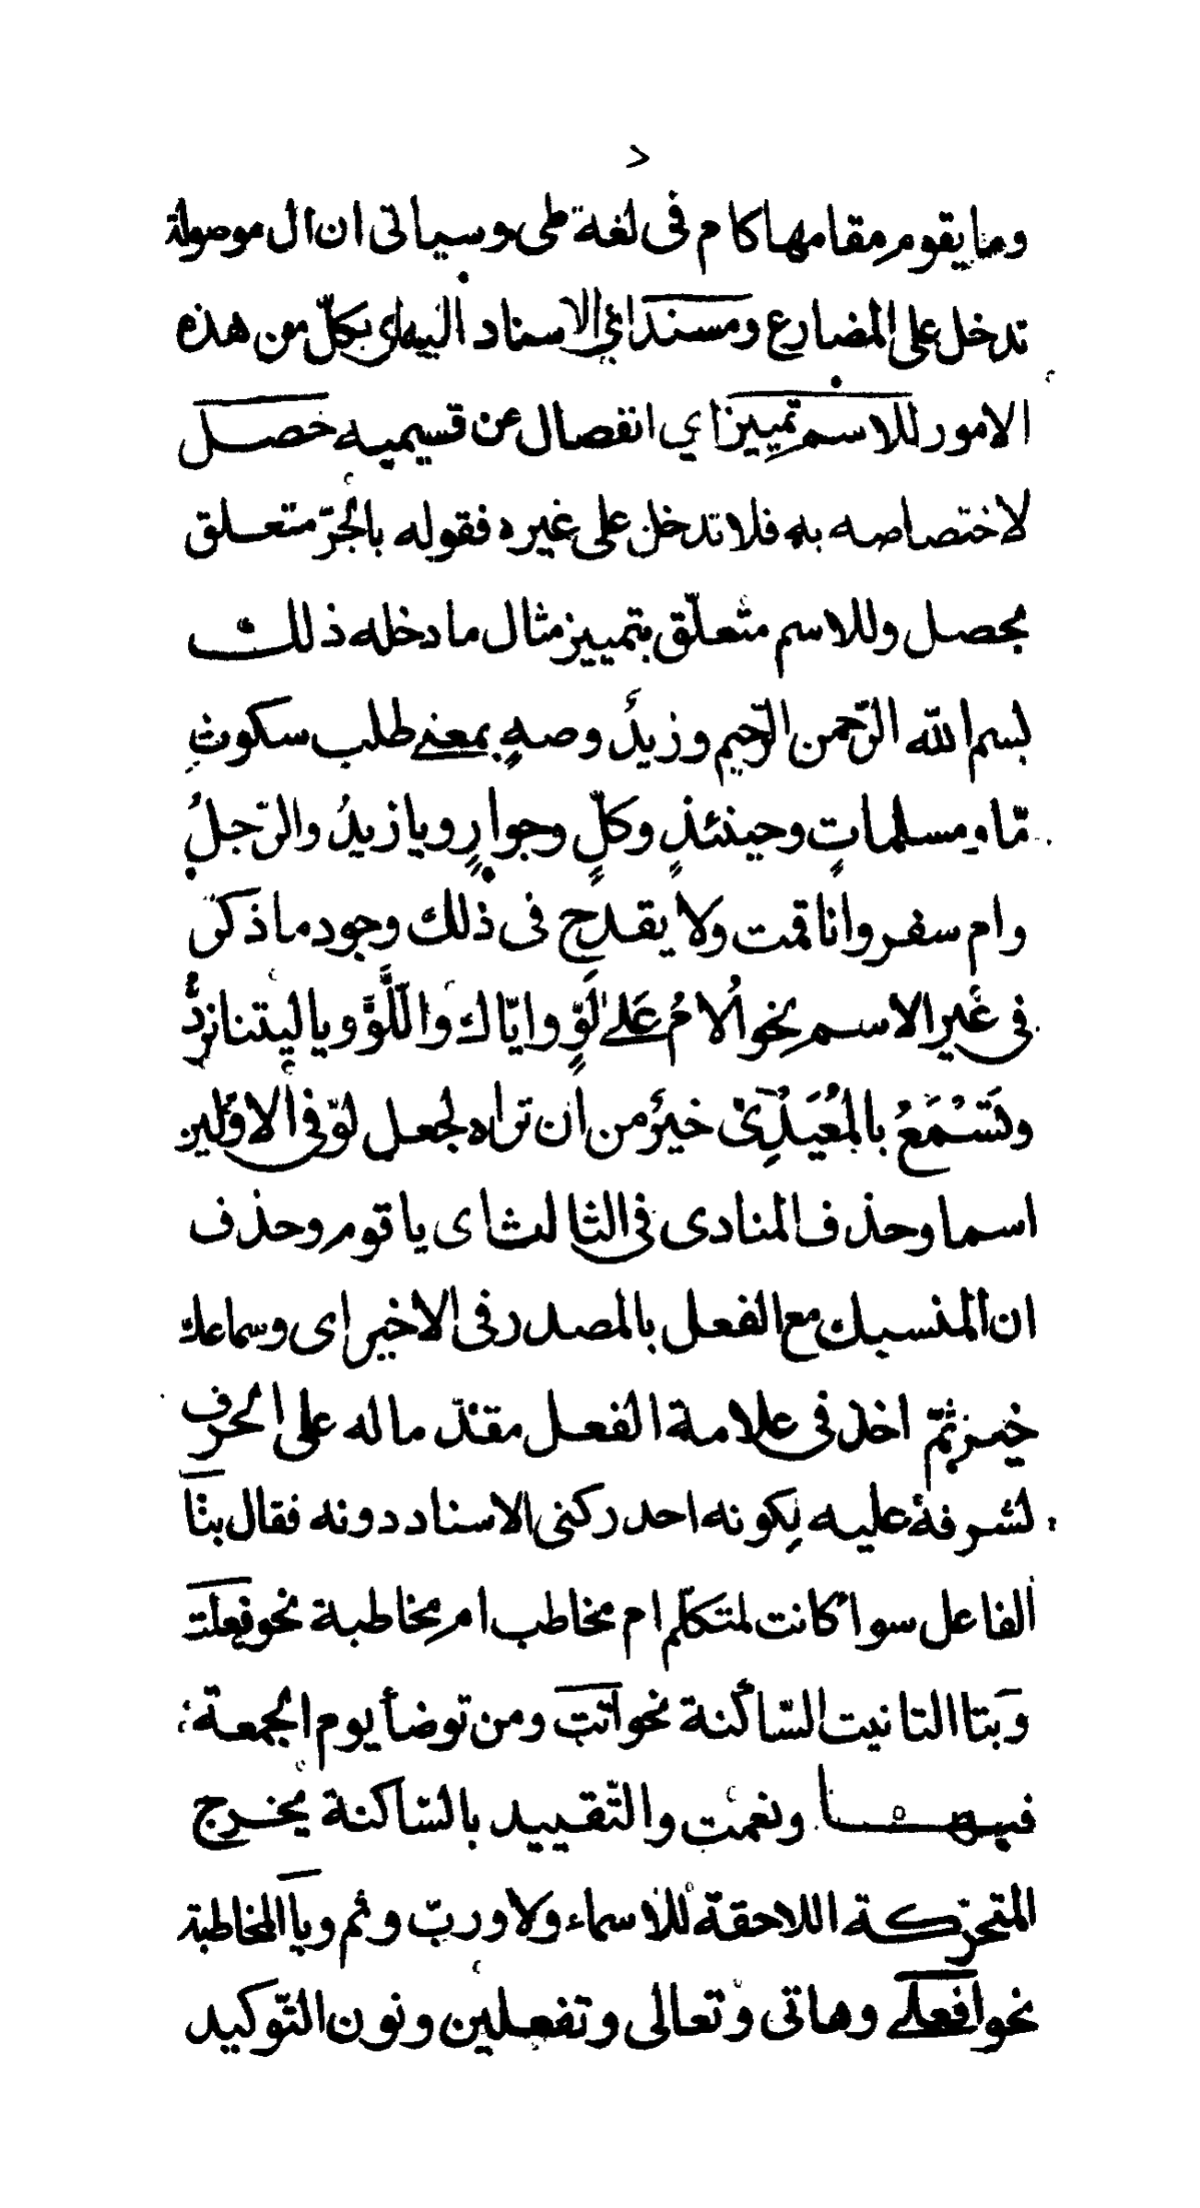 وما يقوم مقامها كام فى لغة طى وسياتى ان ال موصولة
تدخل على المضارع ومسند اي الاسناد اليه اي بكلّ من هذه
الامور للاسم تمييز اي انفصال عن قسيميه حصل
لاختصاصه به فلا تدخل على غيره فقوله بالجرّ متعلق
بحصل وللاسم متعلّق بتمييز مثال ما دخله ذلك
بسم الله الرّحمن الرّحيم وزيدٌ وصهٍ بمعنى طلب سكوتٍ
مّا ومسلماتٍ وحينئذٍ وكلٍّ وجوارٍ ويا زيدُ والرّجلُ
وام سفر وانا قمت ولا يقدح فى ذلك وجود ما ذكر
فى غير الاسم نحو اُلامُ عَلىٰ لَوٍّ وايّاك واللَّوَّ ويا ليتنا نردُّ
وتَسْمَعُ بالمُعَيْدِيّ خيرٌ من ان تراه لجعل لوّ فى الاوّلين
اسما وحذف المنادى فى الثالث اى يا قوم وحذف
ان المنسبك مع الفعل بالمصدر فى الاخير اى وسماعك
خير ثمّ اخذ فى علامة الفعل مقدّما له على الحرف
لشرفه عليه بكونه احد ركنى الاسناد دونه فقال بتا
الفاعل سواء كانت لمتكلّم ام مخاطب ام مخاطبة نحو فعلت
وبتا التانيث السّاكنة نحو اتت ومن توضأ يوم الجمعة
فبهـــا ونعمت والتّقييد بالسّاكنة يخرج
المتحرّكة اللاحقة للاسماء ولا وربّ وثم ويا المخاطبة
نحو افعلى وهاتى وتعالى وتفعلين ونون التّوكيد